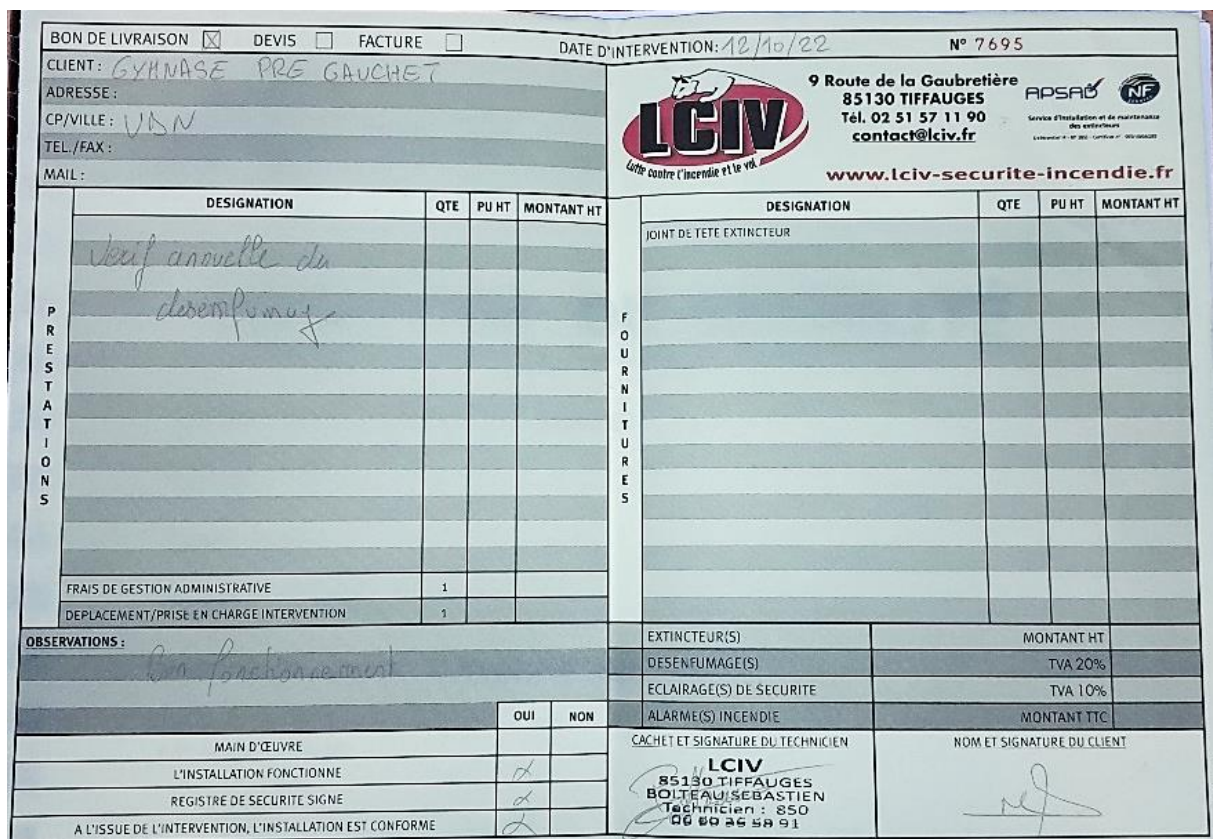 BON DE LIVRAISON ☒ DEVIS ☐ FACTURE ☐
DATE D'INTERVENTION: 12/10/22
N° 7695
CLIENT : GYMNASE PRE GAUCHET
ADRESSE :
CP/VILLE : VDN
TEL./FAX :
MAIL :
LCIV
Lutte contre l'incendie et le vol
9 Route de la Gaubretière
85130 TIFFAUGES
Tél. 02 51 57 11 90
contact@lciv.fr
APSAD
NF
Service d'installation et de maintenance
des extincteurs
www.lciv-securite-incendie.fr
PRESTATIONS
DESIGNATION QTE PU HT MONTANT HT
Verif annuelle du
desenfumag
FRAIS DE GESTION ADMINISTRATIVE 1
DEPLACEMENT/PRISE EN CHARGE INTERVENTION 1
FOURNITURES
DESIGNATION QTE PU HT MONTANT HT
JOINT DE TETE EXTINCTEUR
OBSERVATIONS :
Bon fonctionnement
OUI NON
MAIN D'ŒUVRE
L'INSTALLATION FONCTIONNE X
REGISTRE DE SECURITE SIGNE X
A L'ISSUE DE L'INTERVENTION, L'INSTALLATION EST CONFORME X
EXTINCTEUR(S) MONTANT HT
DESENFUMAGE(S) TVA 20%
ECLAIRAGE(S) DE SECURITE TVA 10%
ALARME(S) INCENDIE MONTANT TTC
CACHET ET SIGNATURE DU TECHNICIEN
LCIV
85130 TIFFAUGES
BOLTEAU SEBASTIEN
Technicien : 850
NOM ET SIGNATURE DU CLIENT